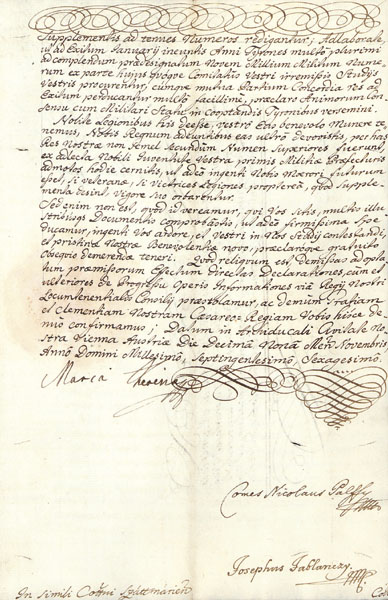 Supplementis ad tenues Numeros redigantur, Adlaborate,
ut ad Exitum January ineuntis Anni Tyrones multo plurimi
ad complendum praedesignatum Novem Millium Militum Nume-
rum ex parte hujus quoque Comitatus Vestri irremissis Studys
Vestris procurentur, cumque mutua Partium Concordia res ad
Exitum perducantur multo facillimi, praeclaro Animorum con-
sensu cum Militari Statu in Cooptandis Tyronibus versemini.
Nobile Legionibus his deesse, vestro
nemus, Nobis Regnum adeuntibus ultro Devovistis, per has
Res Nostra non semel secundum Numen Superiores fuerunt,
ex adlecta Nobili Juventute Vestra primis Militiae Praefecturis
admotos hodie cernitis, ut adeo ingenti Nobis Maerori futurum
esset, si veteranae, si Victrices Legiones propterea, quod Supple-
menta desint, Vigore suo
Sed enim non est, quod id vereamur, qui Vos sitis, multo illu-
striusque Documentis comprobastis, ut adeo firmissima Spe
ducamur, ingenti Vos ardore, et Vestri in Nos Study contestandi,
et pristinae Nostrae Benevolentiae novo, praeclaroque gratuito
Obsequio demerendae teneri. Quod reliquum est, Demissas adopta-
tum praemissorum Effectum directas Declarationes, cum et
ulteriores de Progressu Operis Informationes via Regy Nostri
Locumtenentialis Consily praestolamur, ac demum Gratiam
et Clementiam Nostram Caesareo Regiam Vobis hisce be-
nigno confirmamus; Datum in Archiducali Civitate No-
stra Vienna Austriae Die Decima Nona Mensis Novembris
Anno Domini Millesimo, Septingentesimo, Sexagesimo.
Maria Theresia
Comes Nicolaus Palffy
Josephus Jablanczy
In simili Cottui Szattmariensi